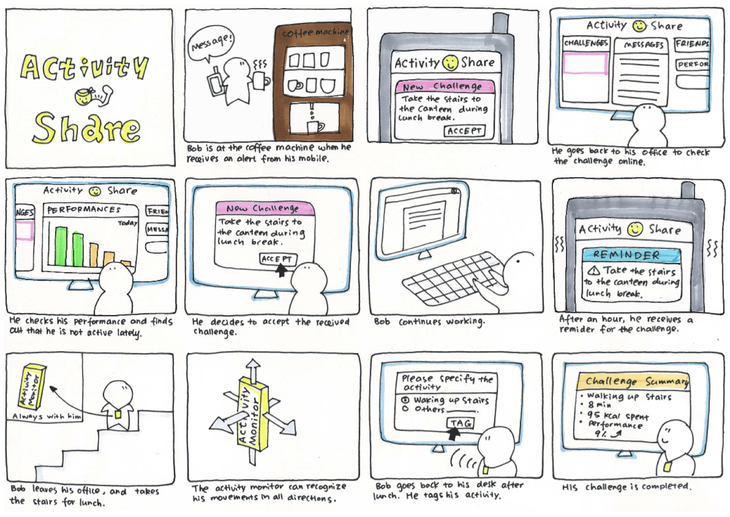 Activity
Share
Message!
coffee machine
Bob is at the coffee machine when he
receives an alert from his mobile.
Activity Share
New Challenge
Take the stairs to
the canteen during
lunch break.
ACCEPT
Activity Share
CHALLENGES
MESSAGES
FRIENDS
PERFOR
He goes back to his office to check
the challenge online.
Activity Share
NGES
PERFORMANCES
Today
FRIEN
MESSA
He checks his performance and finds
out that he is not active lately.
New Challenge
Take the stairs to
the canteen during
lunch break.
ACCEPT
He decides to accept the received
challenge.
Bob continues working.
Activity Share
REMINDER
Take the stairs
to the canteen during
lunch break.
After an hour, he receives a
remider for the challenge.
Activity
Monitor
Always with him
Bob leaves his office, and takes
the stairs for lunch.
Activity
Monitor
The activity monitor can recognize
his movements in all directions.
Please specify the
activity
Walking up Stairs
Others
TAG
Bob goes back to his desk after
lunch. He tags his activity.
Challenge Summary
• Walking up Stairs
• 8 min
• 95 kcal spent
• Performance
9%
His challenge is completed.